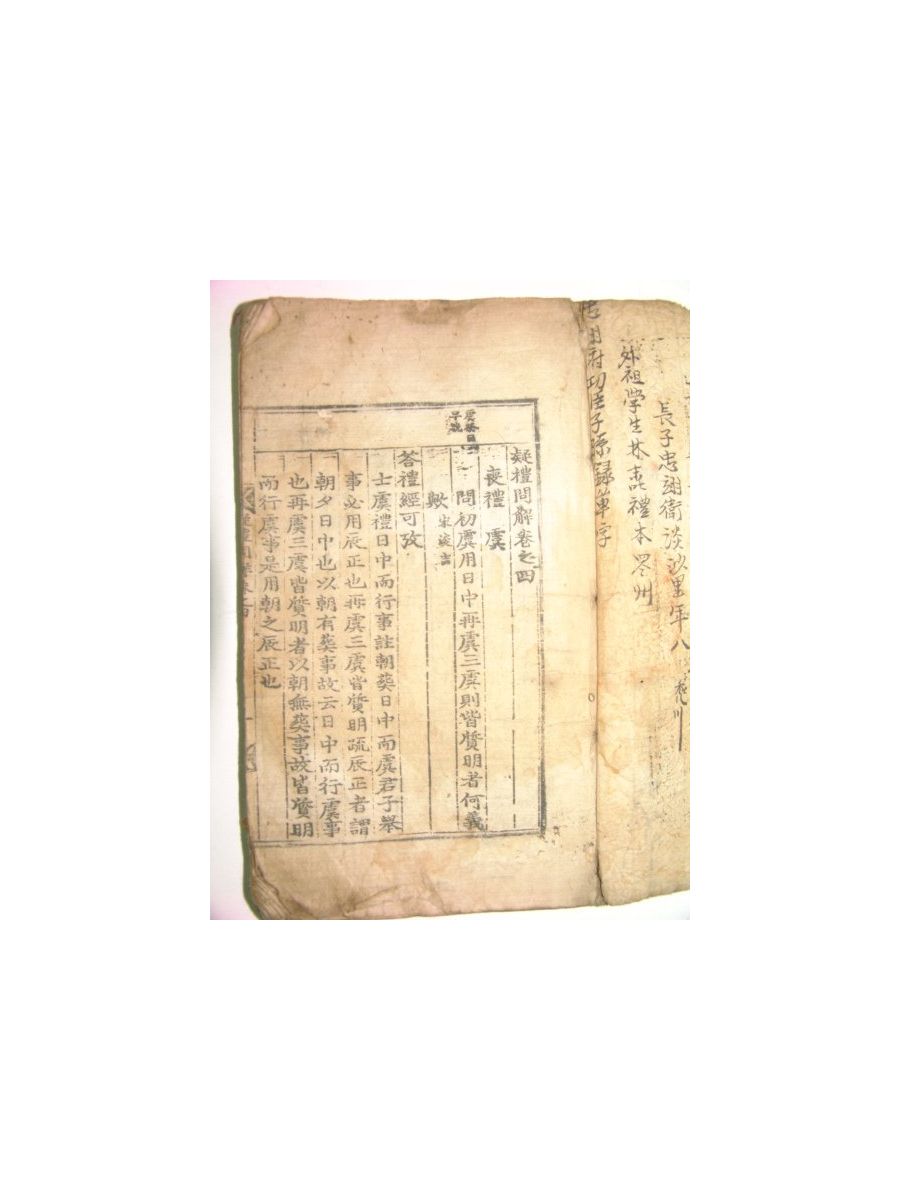 外祖學生林 禮本 州
長子忠 衛淡沙里年八
府功臣子孫錄單字
疑禮問解卷之四
喪禮 虞
問初虞用日中再虞三虞則皆質明者何義
歟 宋浚吉
答禮經可攷
士虞禮日中而行事註朝葬日中而虞君子舉
事必用辰正也再虞三虞皆質明疏辰正者謂
朝夕日中也以朝有葬事故云日中而行虞事
也再虞三虞皆質明者以朝無葬事故皆質明
而行虞事是用朝之辰正也